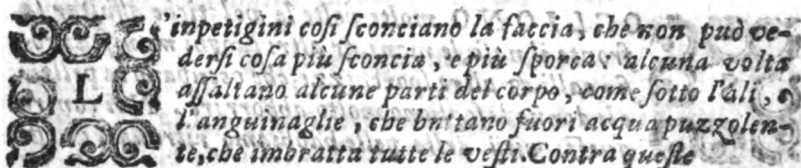 L'inpetigini così ſconciano la faccia, che non può ve-
derſi coſa più ſconcia, e più ſporca: alcuna volta
aſſaltano alcune parti del corpo, come ſotto l'ali, o
l'anguinaglie, che buttano fuori acqua puzzolen-
te, che imbratta tutte le veſti. Contra queſte